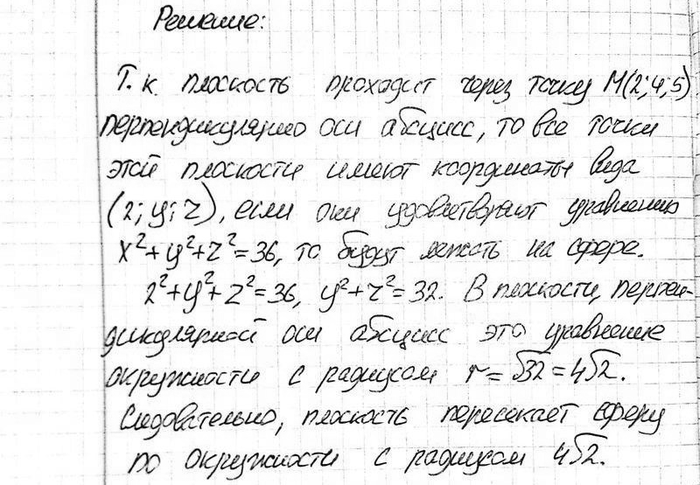 Решение:
Т. к. плоскость проходит через точку M(2;4;5)
перпендикулярно оси абсцисс, то все точки
этой плоскости имеют координаты вида
(2; y; z), если они удовлетворяют уравнению
x²+y²+z²=36, то будут лежать на сфере.
2²+y²+z²=36, y²+z²=32. В плоскости, перпен-
дикулярной оси абсцисс это уравнение
окружности с радиусом r=√32=4√2.
Следовательно, плоскость пересекает сферу
по окружности с радиусом 4√2.